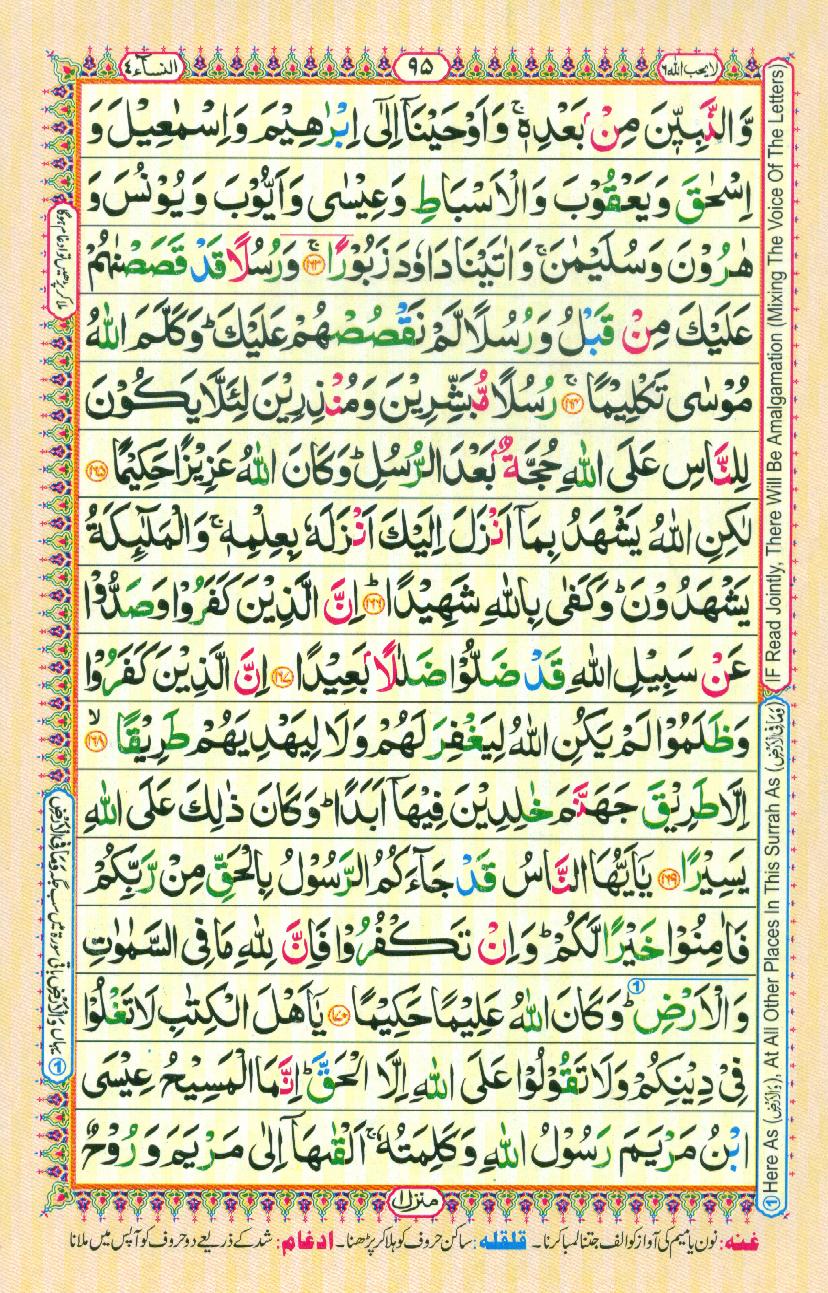 لا یحب اللہ ٦
٩٥
النسآء ٤
وَّالنَّبِيّٖنَ مِنْۢ بَعْدِهٖ ۚ وَاَوْحَيْنَاۤ اِلٰۤى اِبْرٰهِيْمَ وَاِسْمٰعِيْلَ وَ
اِسْحٰقَ وَيَعْقُوْبَ وَالْاَسْبَاطِ وَعِيْسٰى وَاَيُّوْبَ وَيُوْنُسَ وَ
هٰرُوْنَ وَسُلَيْمٰنَ ۚ وَاٰتَيْنَا دَاوٗدَ زَبُوْرًا ۚ ﴿١٦٣﴾ وَرُسُلًا قَدْ قَصَصْنٰهُمْ
عَلَيْكَ مِنْ قَبْلُ وَرُسُلًا لَّمْ نَقْصُصْهُمْ عَلَيْكَ ؕ وَكَلَّمَ اللّٰهُ
مُوْسٰى تَكْلِيْمًا ۚ ﴿١٦٤﴾ رُسُلًا مُّبَشِّرِيْنَ وَمُنْذِرِيْنَ لِئَلَّا يَكُوْنَ
لِلنَّاسِ عَلَى اللّٰهِ حُجَّةٌۢ بَعْدَ الرُّسُلِ ؕ وَكَانَ اللّٰهُ عَزِيْزًا حَكِيْمًا ﴿١٦٥﴾
لٰكِنِ اللّٰهُ يَشْهَدُ بِمَاۤ اَنْزَلَ اِلَيْكَ اَنْزَلَهٗ بِعِلْمِهٖ ۚ وَالْمَلٰٓئِكَةُ
يَشْهَدُوْنَ ؕ وَكَفٰى بِاللّٰهِ شَهِيْدًا ؕ ﴿١٦٦﴾ اِنَّ الَّذِيْنَ كَفَرُوْا وَصَدُّوْا
عَنْ سَبِيْلِ اللّٰهِ قَدْ ضَلُّوْا ضَلٰلًۢا بَعِيْدًا ﴿١٦٧﴾ اِنَّ الَّذِيْنَ كَفَرُوْا
وَظَلَمُوْا لَمْ يَكُنِ اللّٰهُ لِيَغْفِرَ لَهُمْ وَلَا لِيَهْدِيَهُمْ طَرِيْقًا ۙ ﴿١٦٨﴾
اِلَّا طَرِيْقَ جَهَنَّمَ خٰلِدِيْنَ فِيْهَاۤ اَبَدًا ؕ وَكَانَ ذٰلِكَ عَلَى اللّٰهِ
يَسِيْرًا ﴿١٦٩﴾ يٰۤاَيُّهَا النَّاسُ قَدْ جَآءَكُمُ الرَّسُوْلُ بِالْحَقِّ مِنْ رَّبِّكُمْ
فَاٰمِنُوْا خَيْرًا لَّكُمْ ؕ وَاِنْ تَكْفُرُوْا فَاِنَّ لِلّٰهِ مَا فِى السَّمٰوٰتِ
وَالْاَرْضِ ① ؕ وَكَانَ اللّٰهُ عَلِيْمًا حَكِيْمًا ﴿١٧٠﴾ يٰۤاَهْلَ الْكِتٰبِ لَا تَغْلُوْا
فِىْ دِيْنِكُمْ وَلَا تَقُوْلُوْا عَلَى اللّٰهِ اِلَّا الْحَقَّ ؕ اِنَّمَا الْمَسِيْحُ عِيْسَى
ابْنُ مَرْيَمَ رَسُوْلُ اللّٰهِ وَكَلِمَتُهٗ ۚ اَلْقٰىهَاۤ اِلٰى مَرْيَمَ وَرُوْحٌ
منزل ١
IF Read Jointly, There Will Be Amalgamation (Mixing The Voice Of The Letters)
① Here As (وَالْاَرْضِ), At All Other Places In This Surrah As (وَمَا فِى الْاَرْضِ)
ملا کر پڑھیں تو ادغام ہوگا
① یہاں وَالْاَرْضِ باقی سورۃ میں سب جگہ وَمَا فِى الْاَرْضِ
غنہ: نون یا میم کی آواز کو الف جتنا لمبا کرنا۔ قلقلہ: ساکن حروف کو ہلا کر پڑھنا۔ ادغام: شد کے ذریعے دو حروف کو آپس میں ملانا